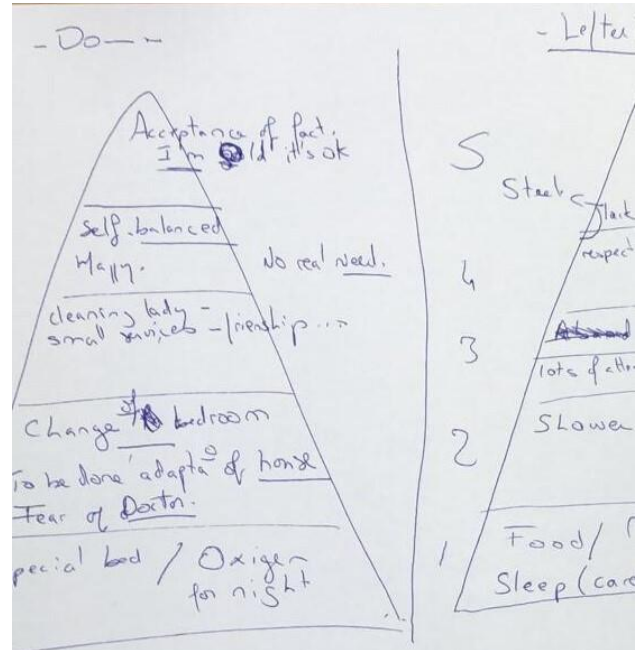 - Do
Acceptance of fact.
I'm old it's ok
Self-balanced
Happy.
No real need.
cleaning lady -
small services - frienship ...
Change of bedroom
To be done adapta° of house
Fear of Doctor.
pecial bed / Oxigen
for night
5
4
3
2
1
- Letter
Steel
lack
respect
lots of atte
Shower
Food /
Sleep (care